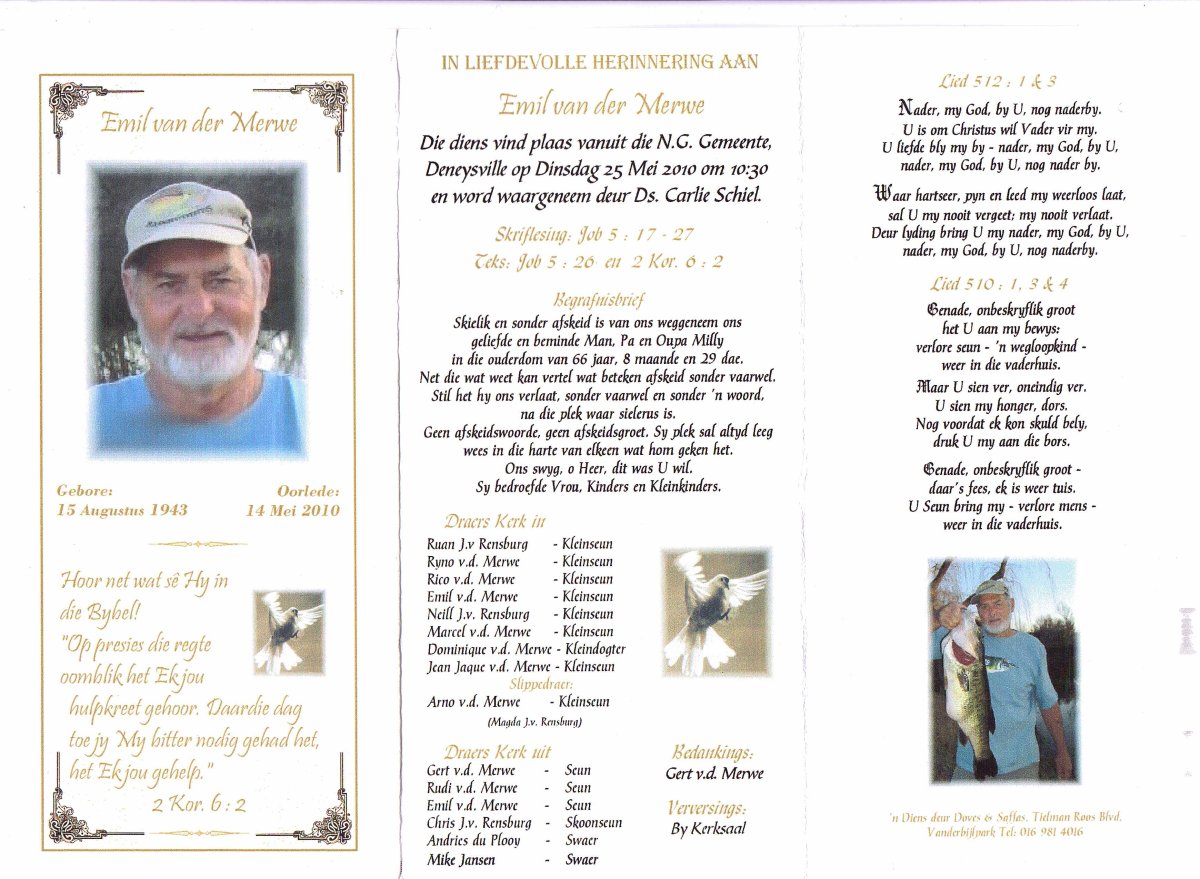 Emil van der Merwe
Gebore:
15 Augustus 1943
Oorlede:
14 Mei 2010
Hoor net wat sê Hy in
die Bybel!
"Op presies die regte
oomblik het Ek jou
hulpkreet gehoor. Daardie dag
toe jy My bitter nodig gehad het,
het Ek jou gehelp."
2 Kor. 6 : 2
IN LIEFDEVOLLE HERINNERING AAN
Emil van der Merwe
Die diens vind plaas vanuit die N.G. Gemeente,
Deneysville op Dinsdag 25 Mei 2010 om 10:30
en word waargeneem deur Ds. Carlie Schiel.
Skriflesing: Job 5 : 17 - 27
Teks: Job 5 : 26 en 2 Kor. 6 : 2
Begrafnisbrief
Skielik en sonder afskeid is van ons weggeneem ons
geliefde en beminde Man, Pa en Oupa Milly
in die ouderdom van 66 jaar, 8 maande en 29 dae.
Net die wat weet kan vertel wat beteken afskeid sonder vaarwel.
Stil het hy ons verlaat, sonder vaarwel en sonder 'n woord,
na die plek waar sielerus is.
Geen afskeidswoorde, geen afskeidsgroet. Sy plek sal altyd leeg
wees in die harte van elkeen wat hom geken het.
Ons swyg, o Heer, dit was U wil.
Sy bedroefde Vrou, Kinders en Kleinkinders.
Draers Kerk in
Ruan J.v Rensburg - Kleinseun
Ryno v.d. Merwe - Kleinseun
Rico v.d. Merwe - Kleinseun
Emil v.d. Merwe - Kleinseun
Neill J.v. Rensburg - Kleinseun
Marcel v.d. Merwe - Kleinseun
Dominique v.d. Merwe - Kleindogter
Jean Jaque v.d. Merwe - Kleinseun
Slippedraer:
Arno v.d. Merwe - Kleinseun
(Magda J.v. Rensburg)
Draers Kerk uit
Gert v.d. Merwe - Seun
Rudi v.d. Merwe - Seun
Emil v.d. Merwe - Seun
Chris J.v. Rensburg - Skoonseun
Andries du Plooy - Swaer
Mike Jansen - Swaer
Bedankings:
Gert v.d. Merwe
Verversings:
By Kerksaal
Lied 512 : 1 & 3
Nader, my God, by U, nog naderby.
U is om Christus wil Vader vir my.
U liefde bly my by - nader, my God, by U,
nader, my God, by U, nog nader by.
Waar hartseer, pyn en leed my weerloos laat,
sal U my nooit vergeet; my nooit verlaat.
Deur lyding bring U my nader, my God, by U,
nader, my God, by U, nog naderby.
Lied 510 : 1, 3 & 4
Genade, onbeskryflik groot
het U aan my bewys:
verlore seun - 'n wegloopkind -
weer in die vaderhuis.
Maar U sien ver, oneindig ver.
U sien my honger, dors.
Nog voordat ek kon skuld bely,
druk U my aan die bors.
Genade, onbeskryflik groot -
daar's fees, ek is weer tuis.
U Seun bring my - verlore mens -
weer in die vaderhuis.
'n Diens deur Doves & Saffas, Tielman Roos Blvd,
Vanderbijlpark Tel: 016 981 4016